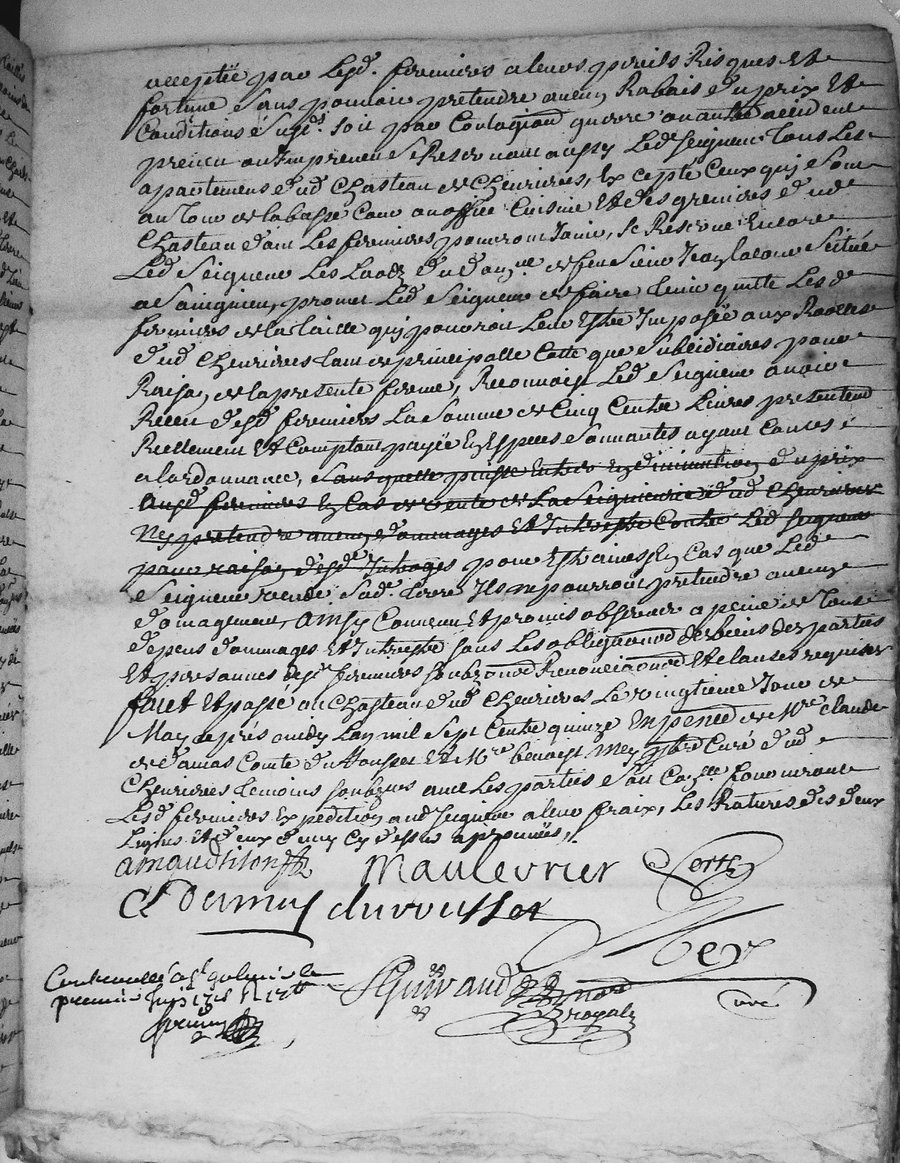 acceptée par lesd. fermiers a leurs perils Risques Et
fortune sans pouvoir pretendre aucun Rabais du prix Et
Conditions susd.s soit par Contagion guerre ou autre accident
preveu ou Impreveu se Reservant aussy Led. seigneur tous Les
apartemens dud. Chasteau de Chevrieres, Excepté Ceux quy sont
au tour de la basse Cour ou office Cuisine Et des greniers dud.
Chasteau dont Les fermiers pourront Jouir, se Reserve Encore
Led. Seigneur Les Laods du de feu sieur Jean situé
a Saingnieu, promet Led. Seigneur de faire tenir quitte Lesd.
fermiers de la taille quy pouroit Leur Estre Imposée aux Roolles
dud. Chevrieres tant de principalle Cotte que Subsidiaires pour
Raison de la presente ferme, Reconnoist Led. Seigneur avoir
Receu desd. fermiers La Somme de Cinq Cents Livres presentemt
Reellement Et Comptant payée En Especes Sonnantes ayant Cours
a lordonnance, sans quelle puisse Entrer En diminution du prix
Ausd. fermiers En Cas de Vente de La Seigneurie dud. Chevrieres
Ny pretendre aucun dommages Et Interests Contre Led. Seigneur
pour raison desd. pour Estraines En Cas que Led.
Seigneur vende Sad. terre Ils ne pourront pretendre aucun
domagement, Ainsy Convenu Et promis observer a peine de Tous
depens dommages Et Interests sous Les obligations des biens des parties
Et personnes desd. fermiers soubz Renonciations Et clauses requises
faict Et passé au Chasteau dud. Chevrieres Le vingtieme Jour de
May aprés midy Lan mil Sept Cents quinze En presence de Mre claude
de damas Comte du Rousset Et Mre benoist Mey pbre Curé dud.
Chevrieres temoins soubznes avec Les parties fourniront
Lesd. fermiers Expedition aud. Seigneur a leur fraix, Les Ratures des deux
Lignes Et deux demy Cy dessus aprouvées,
arnaud titon
Maulevrier
C Damas du rousset
Mey
curé
Controllé a St galmier le
premier Juin 1715
Guiraud
nore
royal